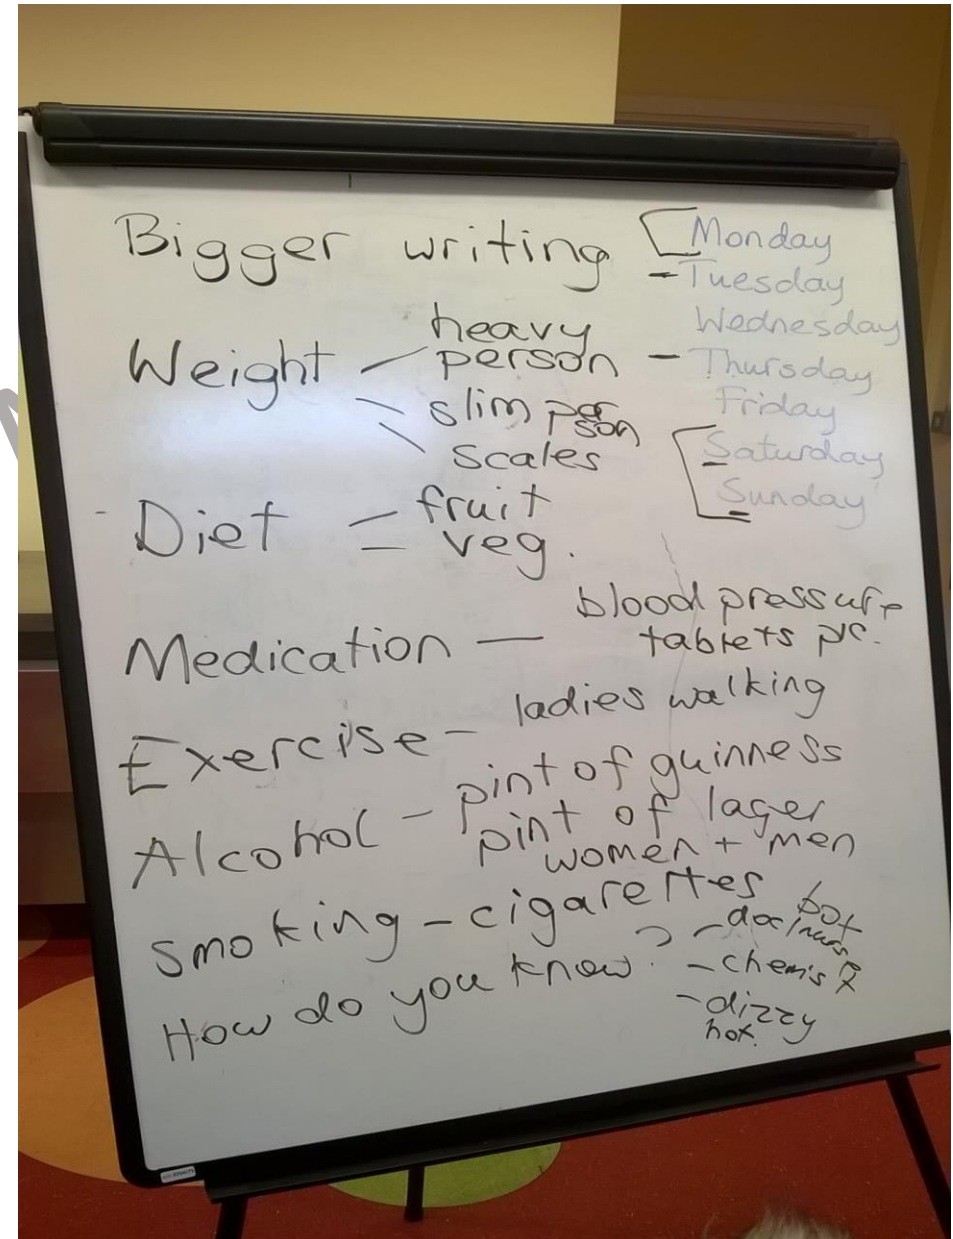 Bigger writing
Monday
Tuesday
Wednesday
Thursday
Friday
Saturday
Sunday
Weight
heavy
person
slim person
scales
Diet
fruit
veg.
Medication
blood pressure
tablets
Exercise - ladies walking
Alcohol - pint of guinness
pint of lager
women + men
smoking - cigarettes
How do you know?
- chemis
- dizzy
hot.